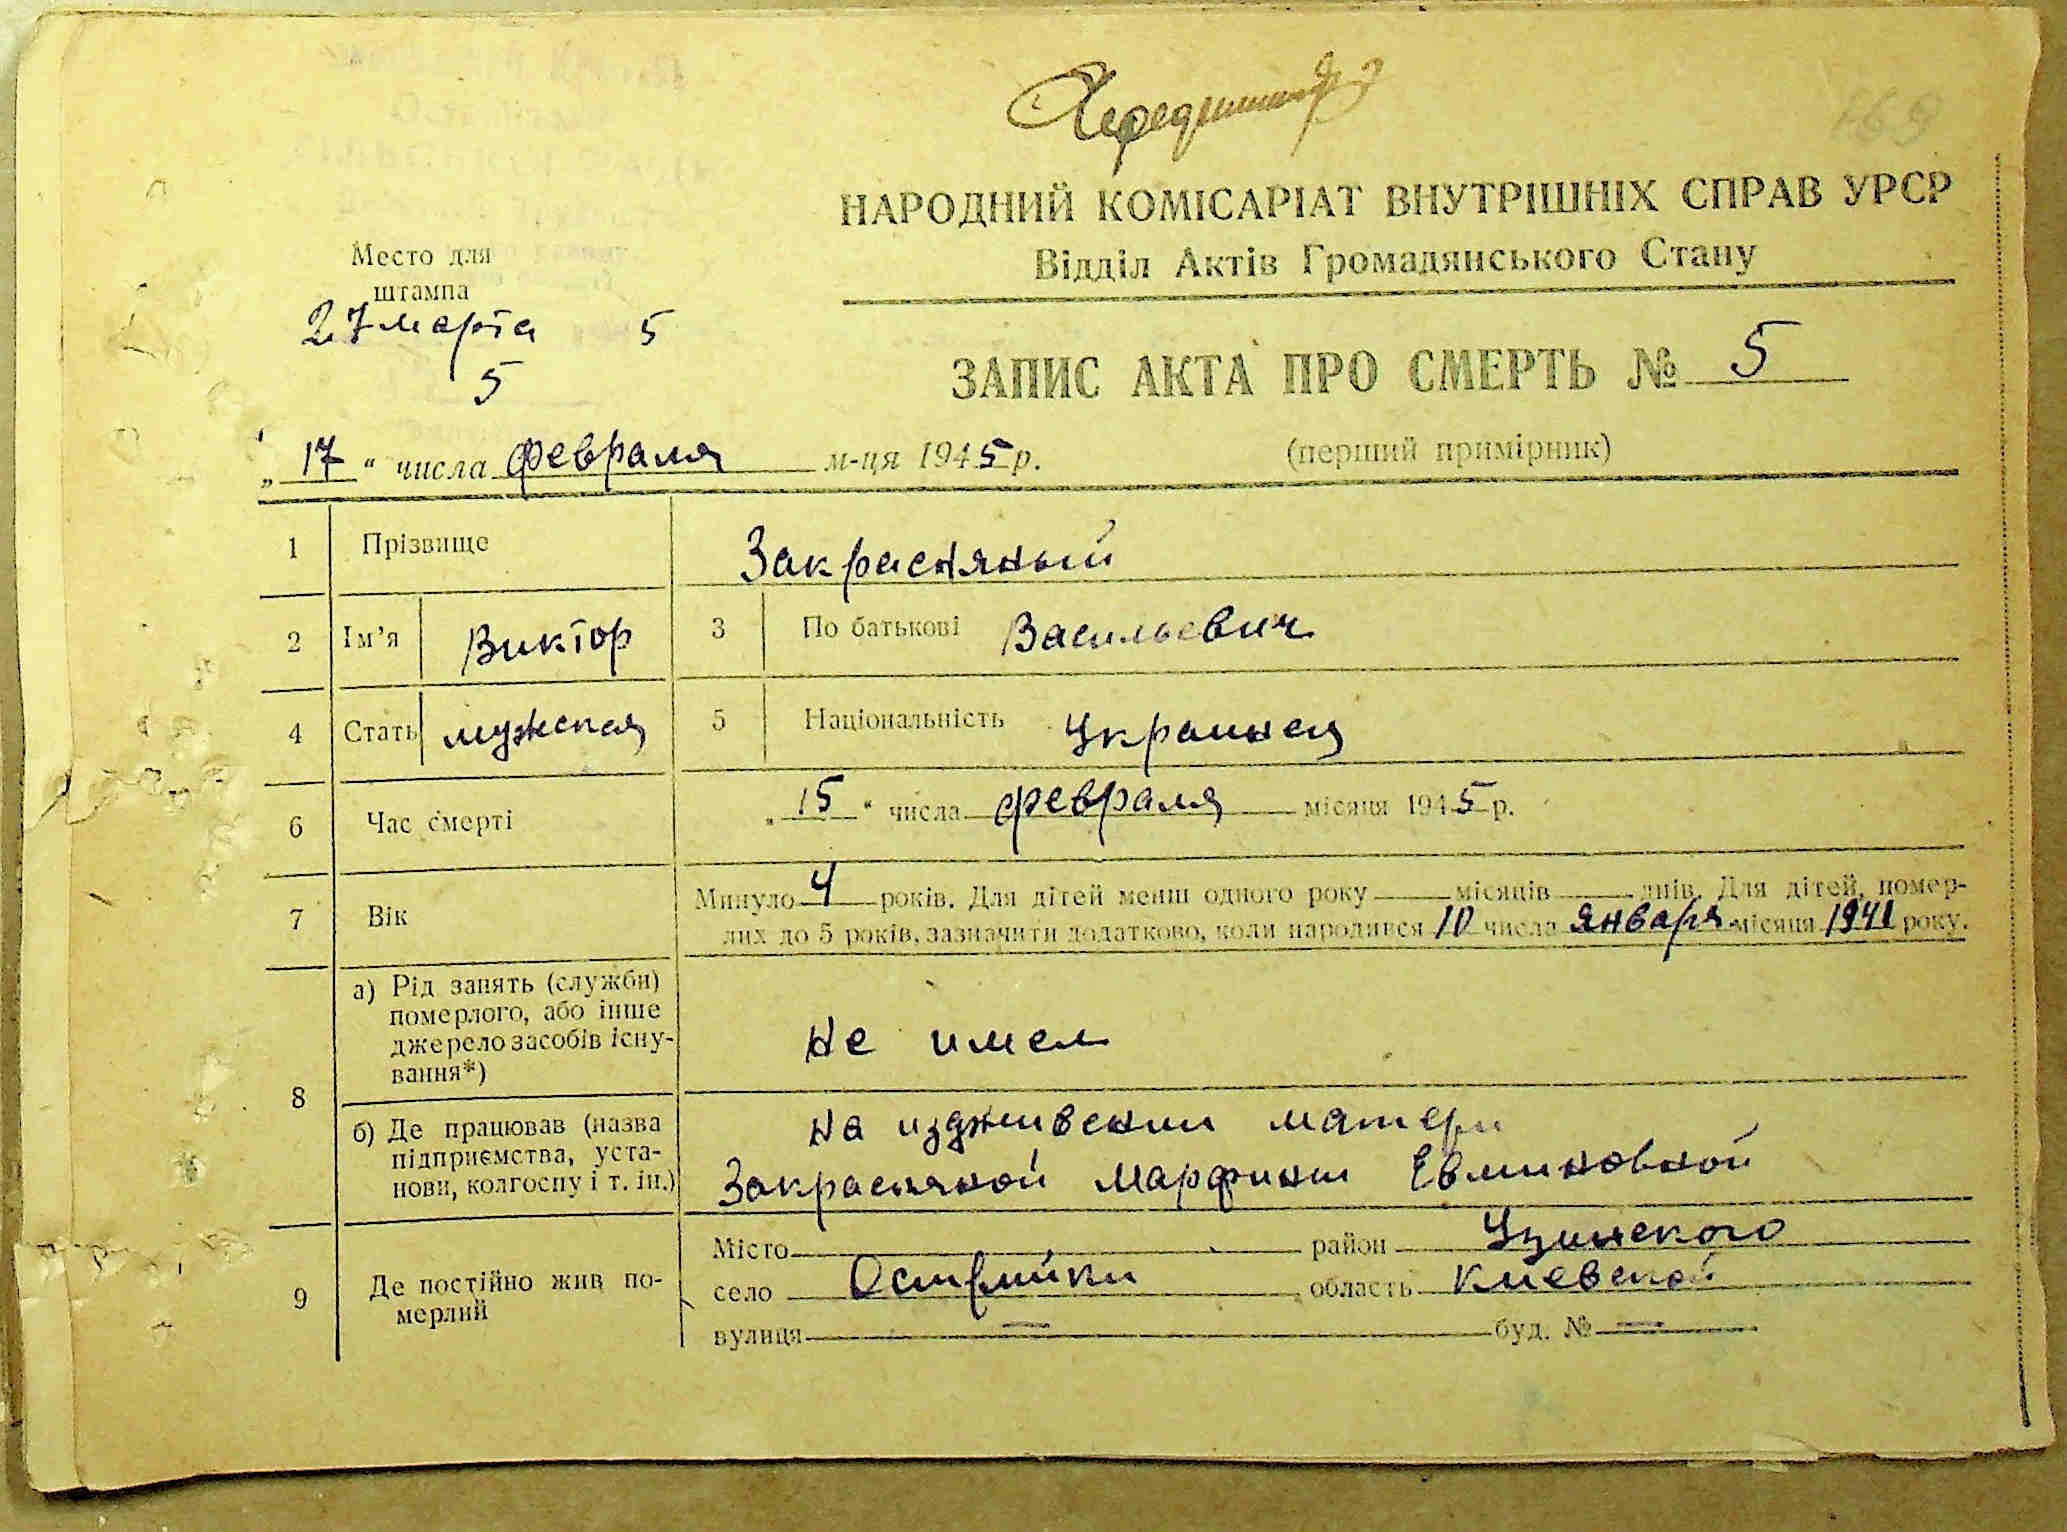 169
НАРОДНИЙ КОМІСАРІАТ ВНУТРІШНІХ СПРАВ УРСР
Відділ Актів Громадянського Стану
Место для
штампа
27 марта 5
5
ЗАПИС АКТА ПРО СМЕРТЬ № 5
„ 17 “ числа февраля м-ця 1945 р. (перший примірник)
1 Прізвище Закрасняный
2 Ім’я Виктор 3 По батькові Васильевич
4 Стать мужская 5 Національність
6 Час смерті „ 15 “ числа февраля місяця 1945 р.
7 Вік Минуло 4 років. Для дітей менш одного року місяців днів. Для дітей, помер-
лих до 5 років, зазначити додатково, коли народився 10 числа января місяця 1941 року.
8 а) Рід занять (служби)
померлого, або інше
джерело засобів існу-
вання*)
не имел
б) Де працював (назва
підприємства, уста-
нови, колгоспу і т. ін.)
на издживении матери
Закрасняной Марфины Евминовной
9 Де постійно жив по-
мерлий
Місто район Узинского
село Острійки область Киевской
вулиця — буд. № —